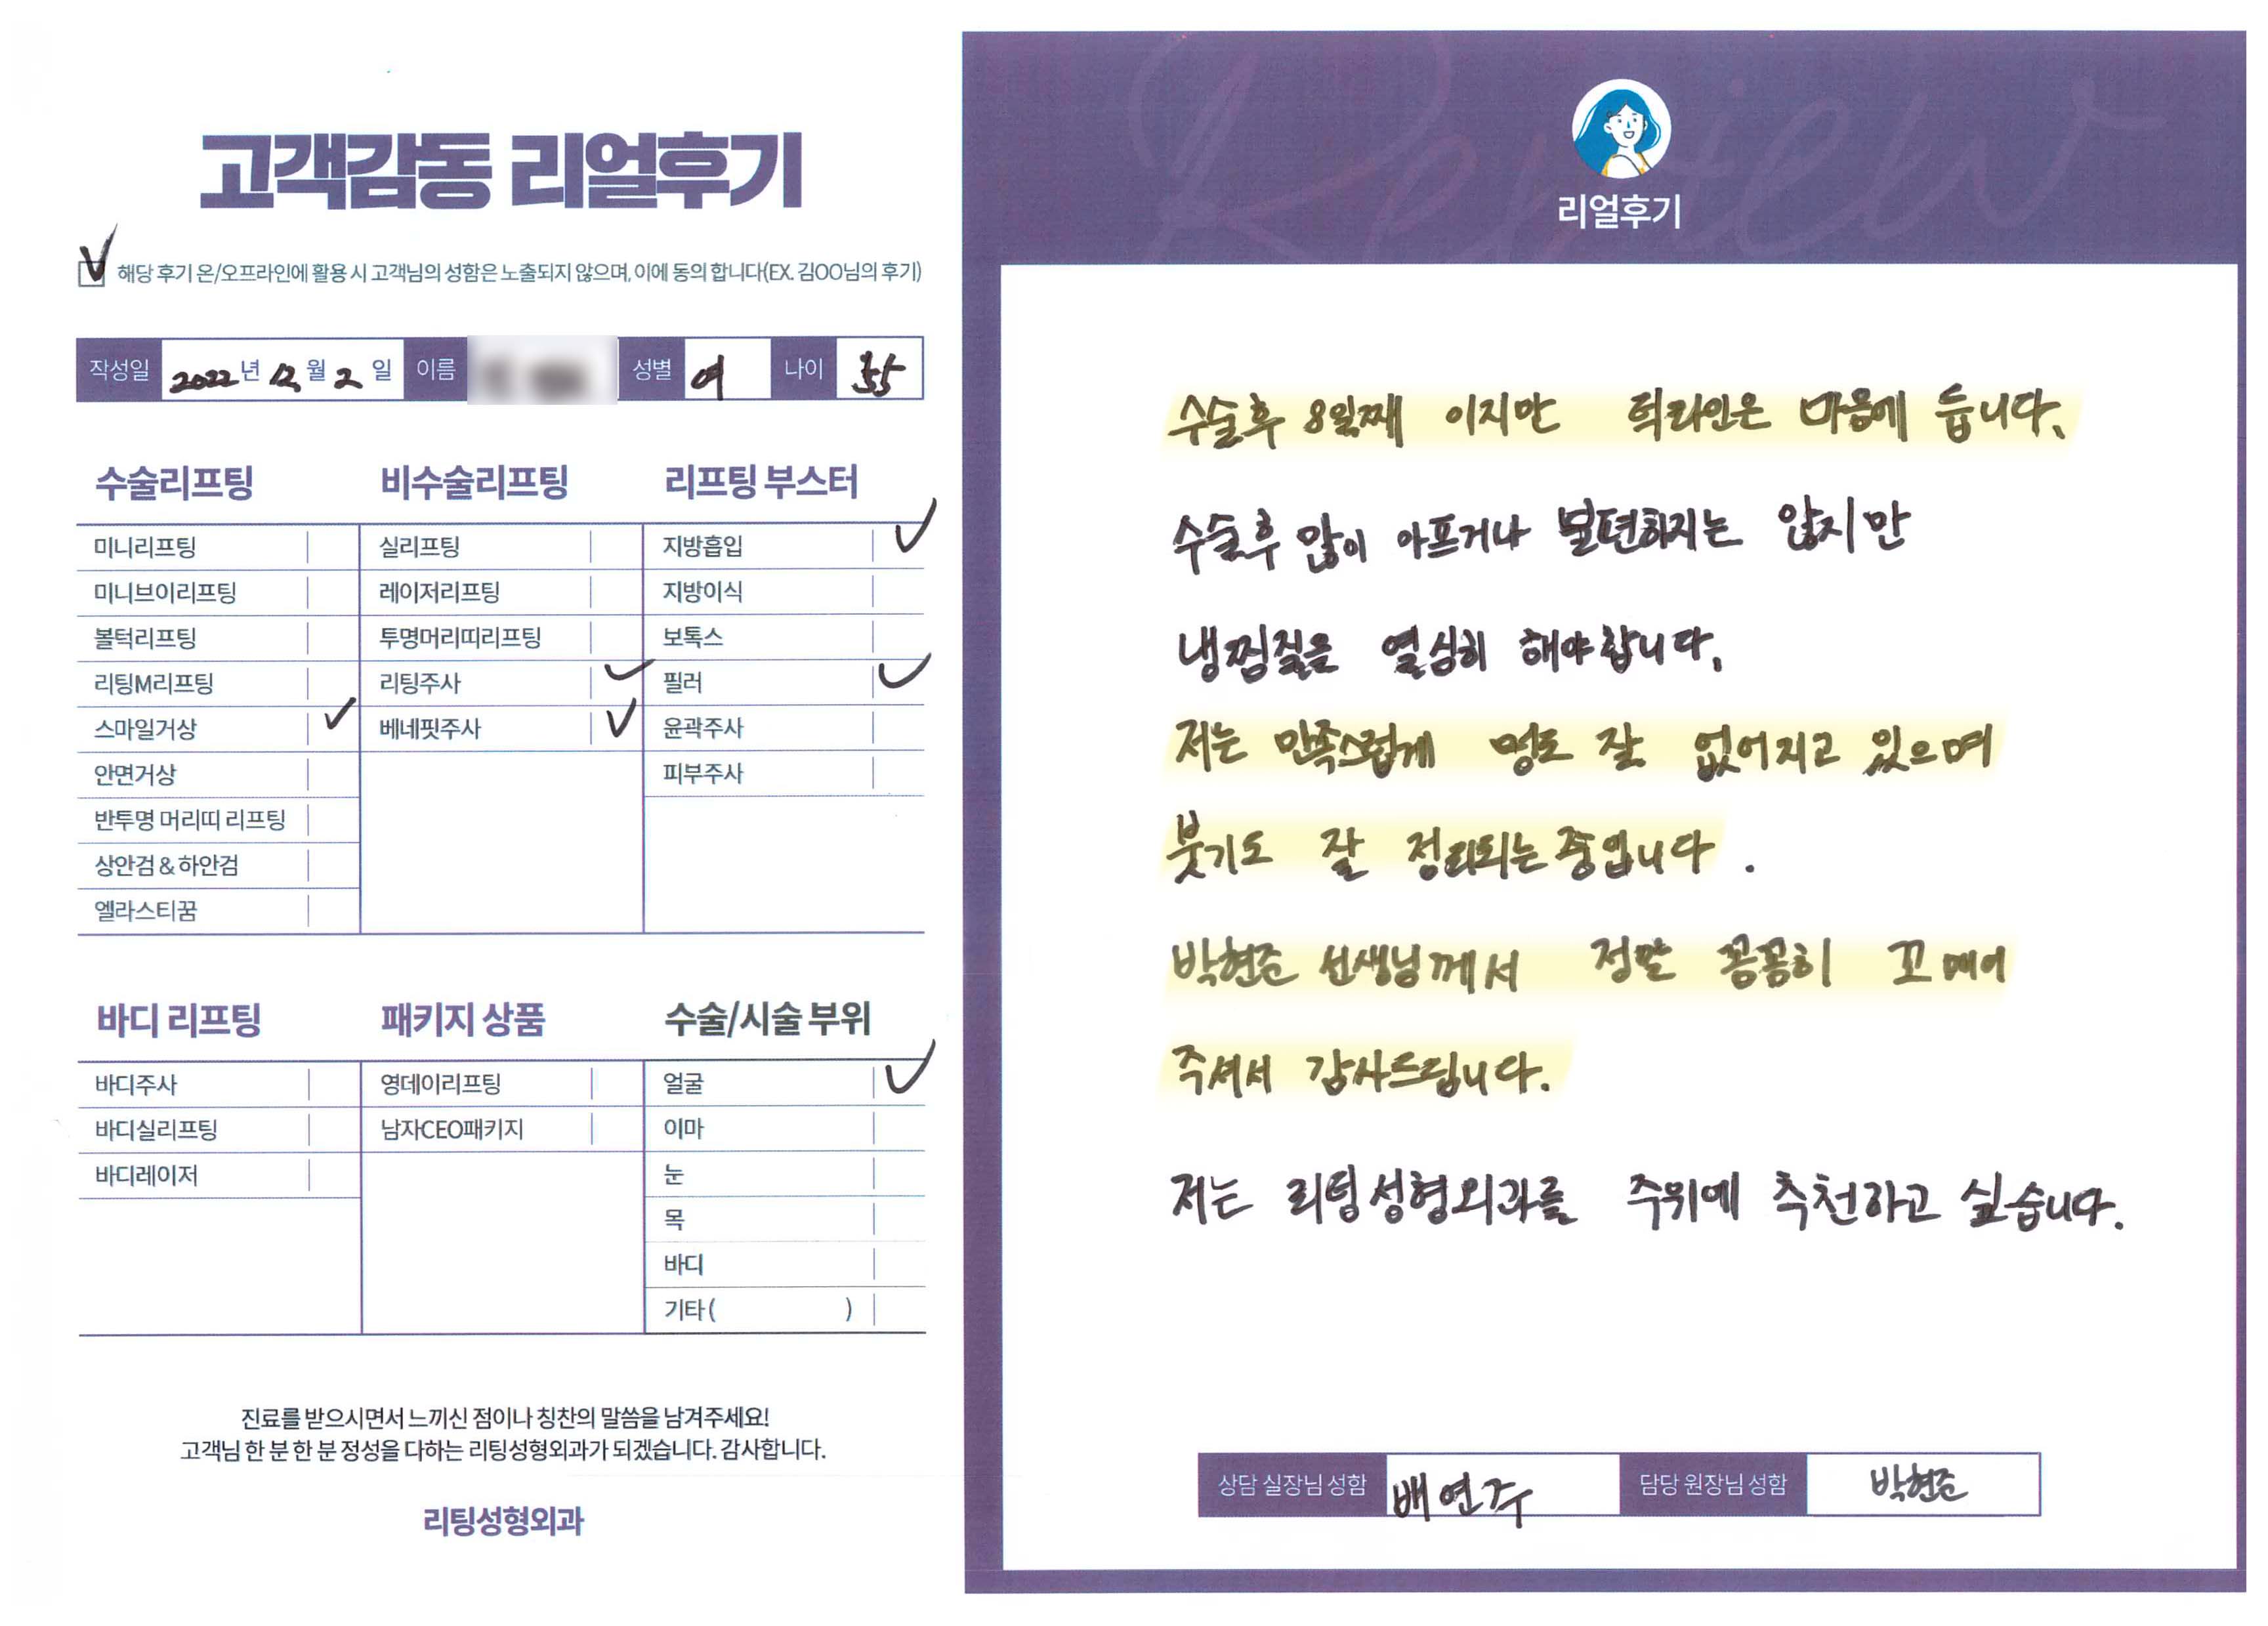 고객감동 리얼후기
해당 후기 온/오프라인에 활용 시 고객님의 성함은 노출되지 않으며, 이에 동의 합니다(EX. 김OO님의 후기)
작성일 2022년 12월 2일 이름 성별 여 나이 35
수술리프팅
미니리프팅
미니브이리프팅
볼턱리프팅
리팅M리프팅
스마일거상
안면거상
반투명 머리띠 리프팅
상안검 & 하안검
엘라스티꿈
비수술리프팅
실리프팅
레이저리프팅
투명머리띠리프팅
리팅주사
베네핏주사
리프팅 부스터
지방흡입
지방이식
보톡스
필러
윤곽주사
피부주사
바디 리프팅
바디주사
바디실리프팅
바디레이저
패키지 상품
영데이리프팅
남자CEO패키지
수술/시술 부위
얼굴
이마
눈
목
바디
기타 ( )
진료를 받으시면서 느끼신 점이나 칭찬의 말씀을 남겨주세요!
고객님 한 분 한 분 정성을 다하는 리팅성형외과가 되겠습니다. 감사합니다.
리팅성형외과
Review
리얼후기
수술후 8일째 이지만 턱라인은 마음에 듭니다.
수술후 많이 아프거나 불편하지는 않지만
냉찜질을 열심히 해야합니다.
저는 만족스럽게 멍도 잘 없어지고 있으며
붓기도 잘 정리되는 중입니다.
박현준 선생님께서 정말 꼼꼼히 꼬매어
주셔서 감사드립니다.
저는 리팅성형외과를 주위에 추천하고 싶습니다.
상담 실장님 성함 배연주 담당 원장님 성함 박현준